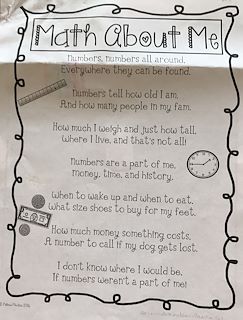 Math About Me
Numbers, numbers all around.
Everywhere they can be found.
Numbers tell how old I am,
And how many people in my fam.
How much I weigh and just how tall,
Where I live, and that's not all!
Numbers are a part of me,
money, time, and history.
When to wake up and when to eat.
What size shoes to buy for my feet.
How much money something costs,
A number to call if my dog gets lost.
I don't know where I would be,
If numbers weren't a part of me!